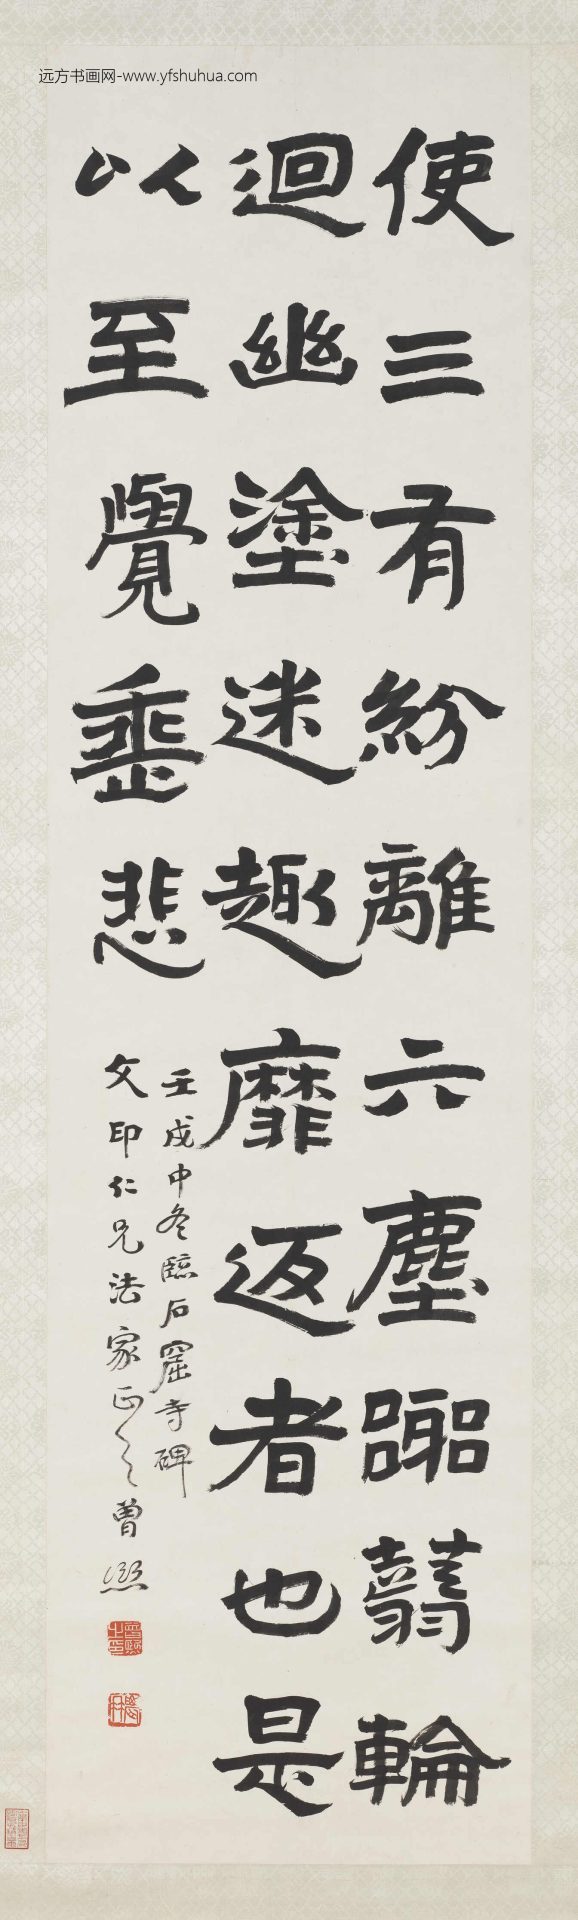 远方书画网-www.yfshuhua.com
使三有紛離六塵嚻翳輪
迴幽塗迷趣靡返者也是
以至覺垂悲
壬戌中冬臨石窟寺碑
文印仁兄法家正之曾熙
曾熙之印
農髯